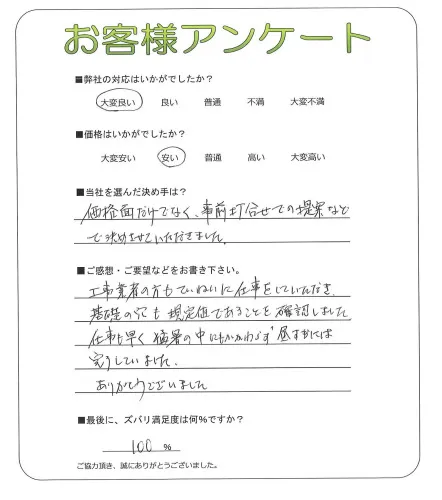 お客様アンケート
■弊社の対応はいかがでしたか？
大変良い 良い 普通 不満 大変不満
■価格はいかがでしたか？
大変安い 安い 普通 高い 大変高い
■当社を選んだ決め手は？
価格面だけでなく、事前打合せでの提案など
で決めさせていただきました。
■ご感想・ご要望などをお書き下さい。
工事業者の方もていねいに仕事をしていただき、
基礎の穴も規定値であることを確認しました
仕事も早く猛暑の中にもかかわらず昼までには
完了していました。
ありがとうございました
■最後に、ズバリ満足度は何％ですか？
100 %
ご協力頂き、誠にありがとうございました。